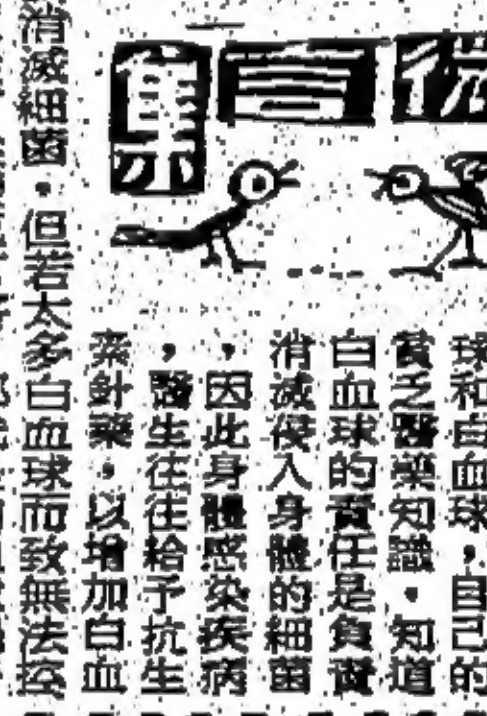 微言集
球和白血球，自己的
貧乏醫藥知識，知道
白血球的責任是負責
消滅侵入身體的細菌
，因此身體感染疾病
，醫生往往給予抗生
素針藥，以增加白血
消滅細菌，但若太多白血球而致無法控